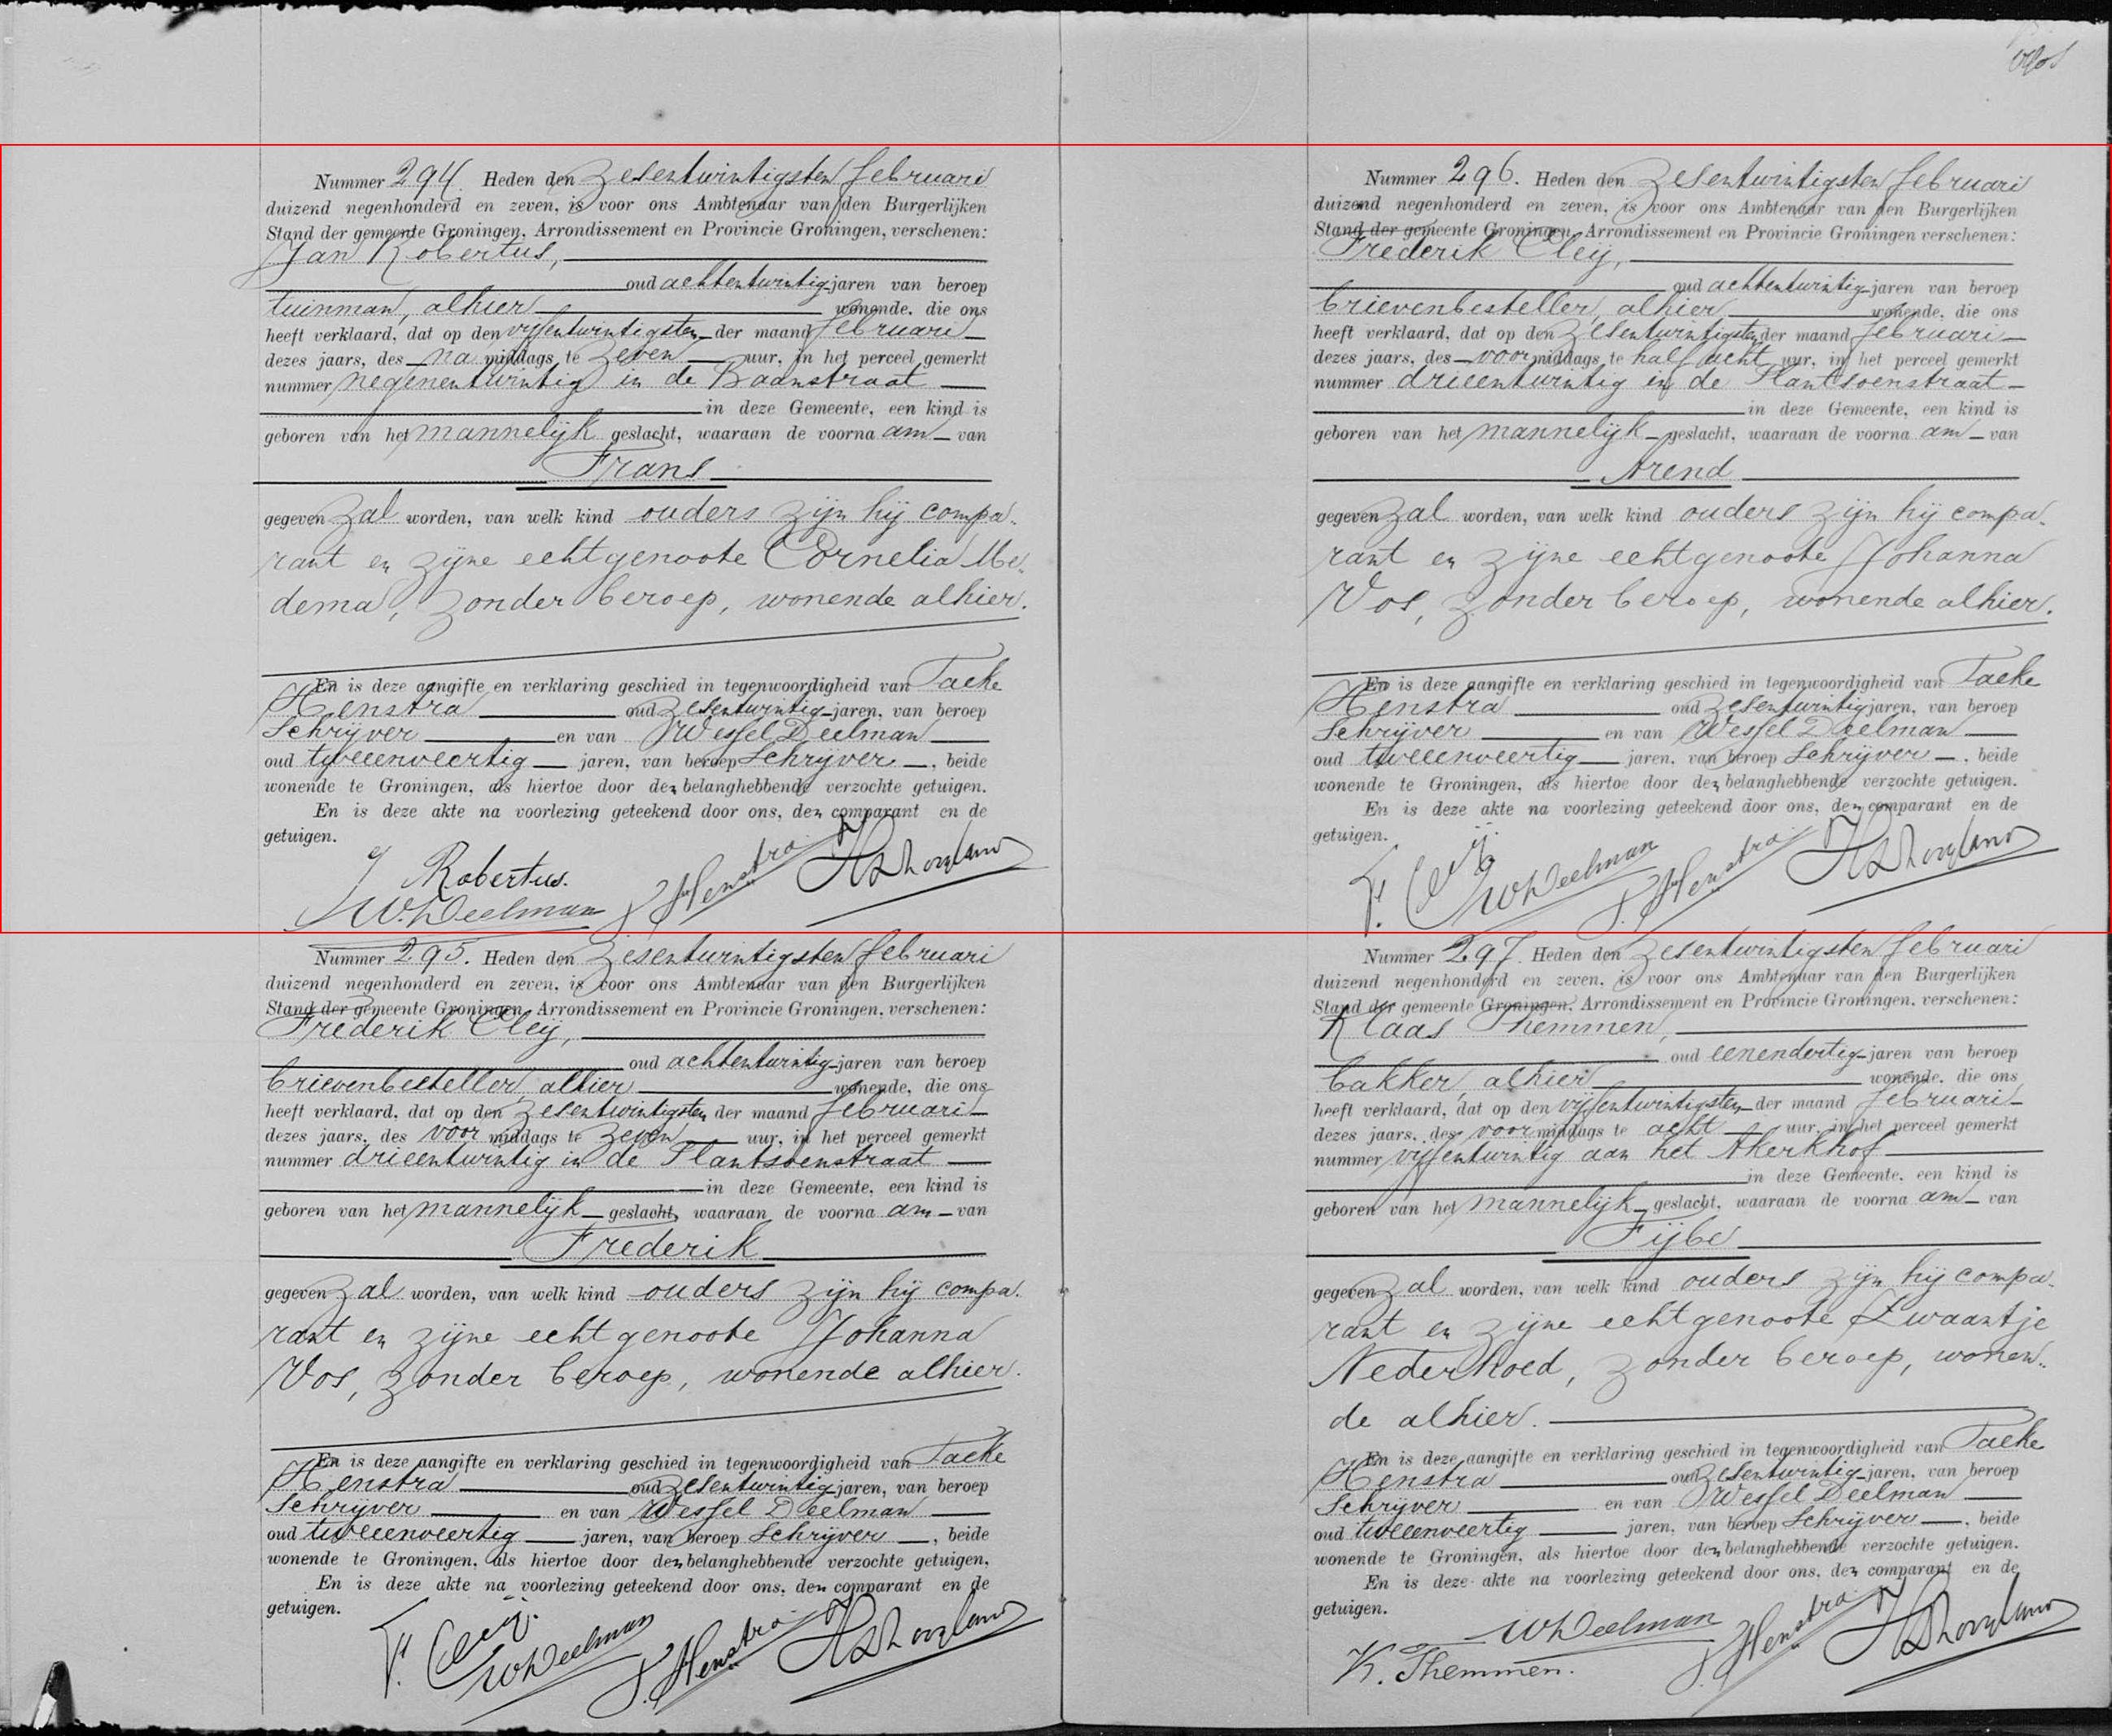 Nummer 294. Heden den zesentwintigsten februari
duizend negenhonderd en zeven, is voor ons Ambtenaar van den Burgerlijken
Stand der gemeente Groningen, Arrondissement en Provincie Groningen, verschenen:
Jan Robertus,
oud achtentwintig jaren van beroep
tuinman, alhier wonende, die ons
heeft verklaard, dat op den vijfentwintigsten der maand februari
dezes jaars, des na middags te zeven uur, in het perceel gemerkt
nummer negenentwintig in de Baanstraat
in deze Gemeente, een kind is
geboren van het mannelijk geslacht, waaraan de voorna am van
Frans
gegeven zal worden, van welk kind ouders zijn hij compa-
rant en zijne echtgenoote Cornelia Me-
dema, zonder beroep, wonende alhier.
En is deze aangifte en verklaring geschied in tegenwoordigheid van Taeke
Henstra oud zesentwintig jaren, van beroep
Schrijver en van Wessel Deelman
oud tweeenveertig jaren, van beroep Schrijver, beide
wonende te Groningen, als hiertoe door den belanghebbende verzochte getuigen.
En is deze akte na voorlezing geteekend door ons, den comparant en de
getuigen.
J Robertus.
W. Deelman T. Henstra
Nummer 295. Heden den zesentwintigsten februari
duizend negenhonderd en zeven, is voor ons Ambtenaar van den Burgerlijken
Stand der gemeente Groningen, Arrondissement en Provincie Groningen, verschenen:
Frederik Cleij,
oud achtentwintig jaren van beroep
brievenbesteller, alhier wonende, die ons
heeft verklaard, dat op den zesentwintigsten der maand februari
dezes jaars, des voor middags te zeven uur, in het perceel gemerkt
nummer drieentwintig in de Plantsoenstraat
in deze Gemeente, een kind is
geboren van het mannelijk geslacht, waaraan de voorna am van
Frederik
gegeven zal worden, van welk kind ouders zijn hij compa-
rant en zijne echtgenoote Johanna
Vos, zonder beroep, wonende alhier.
En is deze aangifte en verklaring geschied in tegenwoordigheid van Taeke
Henstra oud zesentwintig jaren, van beroep
Schrijver en van Wessel Deelman
oud tweeenveertig jaren, van beroep Schrijver, beide
wonende te Groningen, als hiertoe door den belanghebbende verzochte getuigen,
En is deze akte na voorlezing geteekend door ons, den comparant en de
getuigen.
F. Cleij. W Deelman T. Henstra
Nummer 296. Heden den zesentwintigsten februari
duizend negenhonderd en zeven, is voor ons Ambtenaar van den Burgerlijken
Stand der gemeente Groningen, Arrondissement en Provincie Groningen verschenen:
Frederik Cleij,
oud achtentwintig jaren van beroep
brievenbesteller, alhier wonende, die ons
heeft verklaard, dat op den zesentwintigsten der maand februari
dezes jaars, des voor middags te half acht uur, in het perceel gemerkt
nummer drieentwintig in de Plantsoenstraat
in deze Gemeente, een kind is
geboren van het mannelijk geslacht, waaraan de voorna am van
Arend
gegeven zal worden, van welk kind ouders zijn hij compa-
rant en zijne echtgenoote Johanna
Vos, zonder beroep, wonende alhier.
En is deze aangifte en verklaring geschied in tegenwoordigheid van Taeke
Henstra oud zesentwintig jaren, van beroep
Schrijver en van Wessel Deelman
oud tweeenveertig jaren, van beroep Schrijver, beide
wonende te Groningen, als hiertoe door den belanghebbende verzochte getuigen.
En is deze akte na voorlezing geteekend door ons, den comparant en de
getuigen.
F. Cleij W Deelman T. Henstra
Nummer 297. Heden den zesentwintigsten februari
duizend negenhonderd en zeven, is voor ons Ambtenaar van den Burgerlijken
Stand der gemeente Groningen, Arrondissement en Provincie Groningen, verschenen:
Klaas Themmen,
oud eenendertig jaren van beroep
bakker, alhier wonende, die ons
heeft verklaard, dat op den vijfentwintigsten der maand februari
dezes jaars, des voor middags te acht uur, in het perceel gemerkt
nummer vijfentwintig aan het Akerkhof
in deze Gemeente, een kind is
geboren van het mannelijk geslacht, waaraan de voorna am van
Fijbe
gegeven zal worden, van welk kind ouders zijn hij compa-
rant en zijne echtgenoote Zwaantje
Nederhoed, zonder beroep, wonen-
de alhier.
En is deze aangifte en verklaring geschied in tegenwoordigheid van Taeke
Henstra oud zesentwintig jaren, van beroep
Schrijver en van Wessel Deelman
oud tweeenveertig jaren, van beroep Schrijver, beide
wonende te Groningen, als hiertoe door den belanghebbende verzochte getuigen.
En is deze akte na voorlezing geteekend door ons, den comparant en de
getuigen.
W Deelman T. Henstra
K. Themmen.